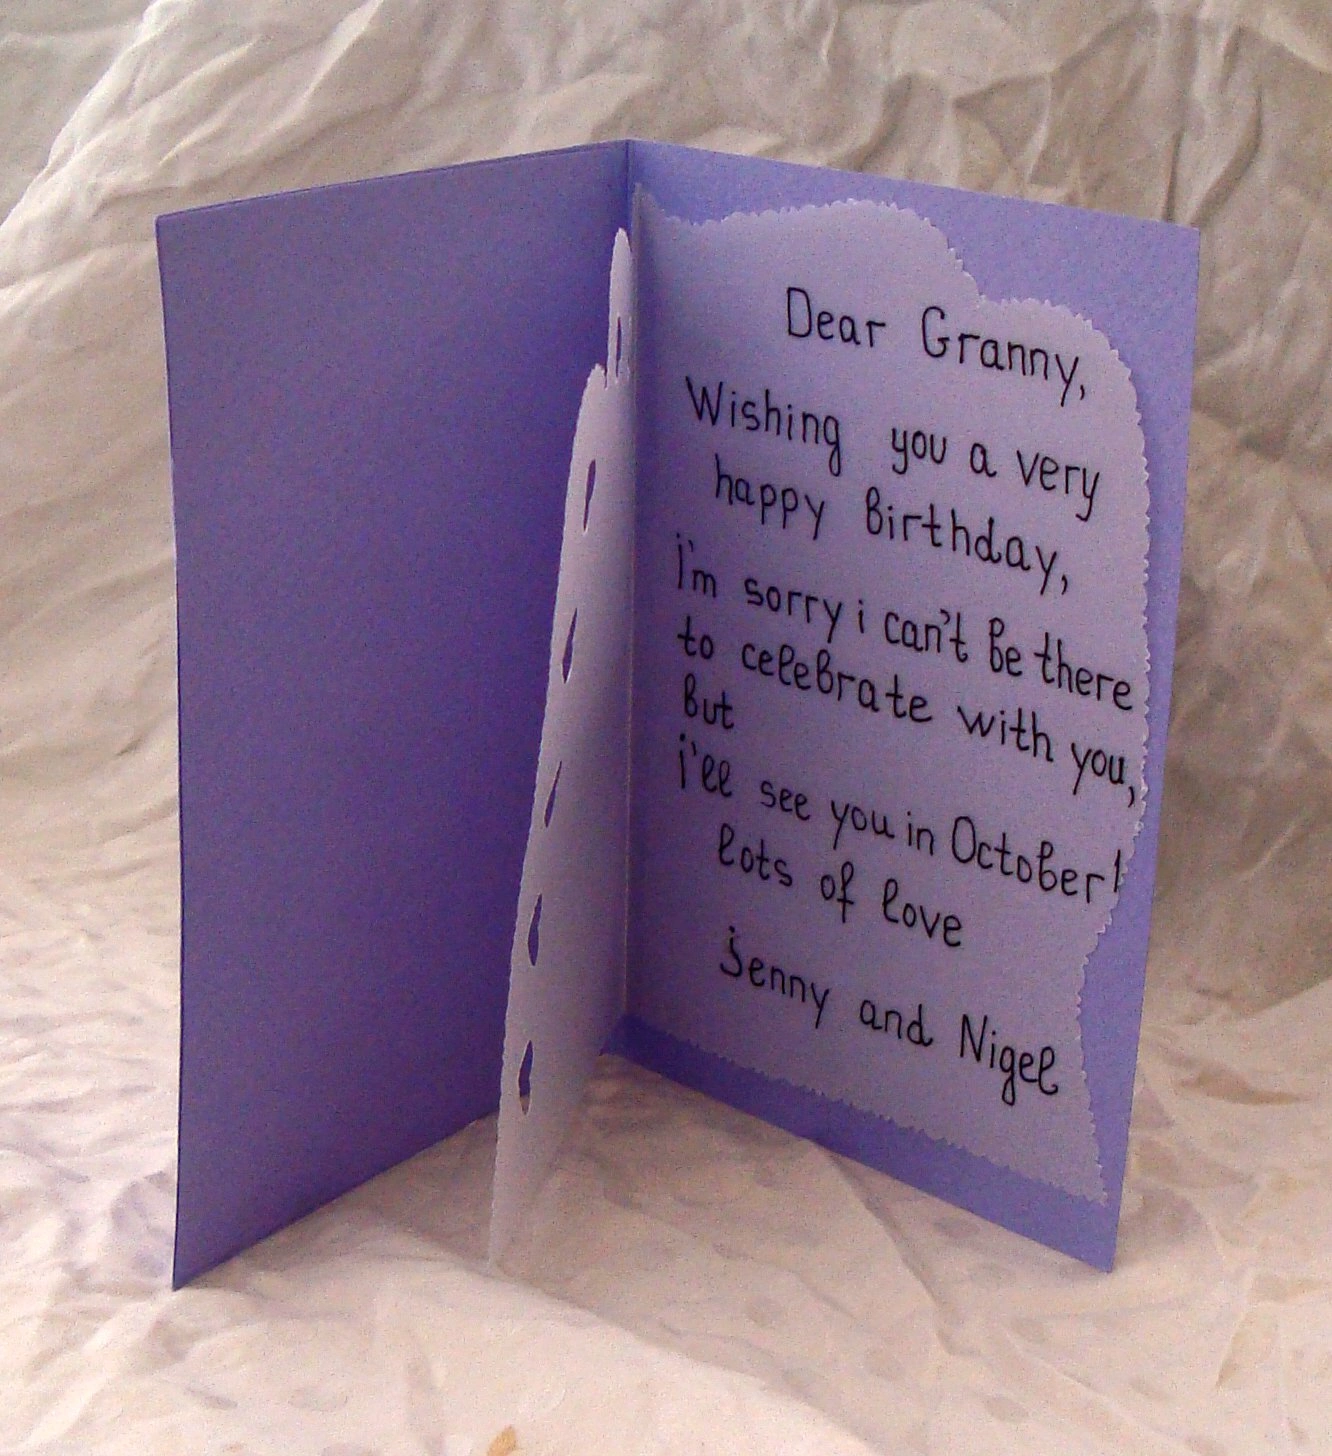 Dear Granny,
Wishing you a very
happy Birthday,
i'm sorry i can't be there
to celebrate with you,
But
i'll see you in October!
lots of love
Jenny and Nigel